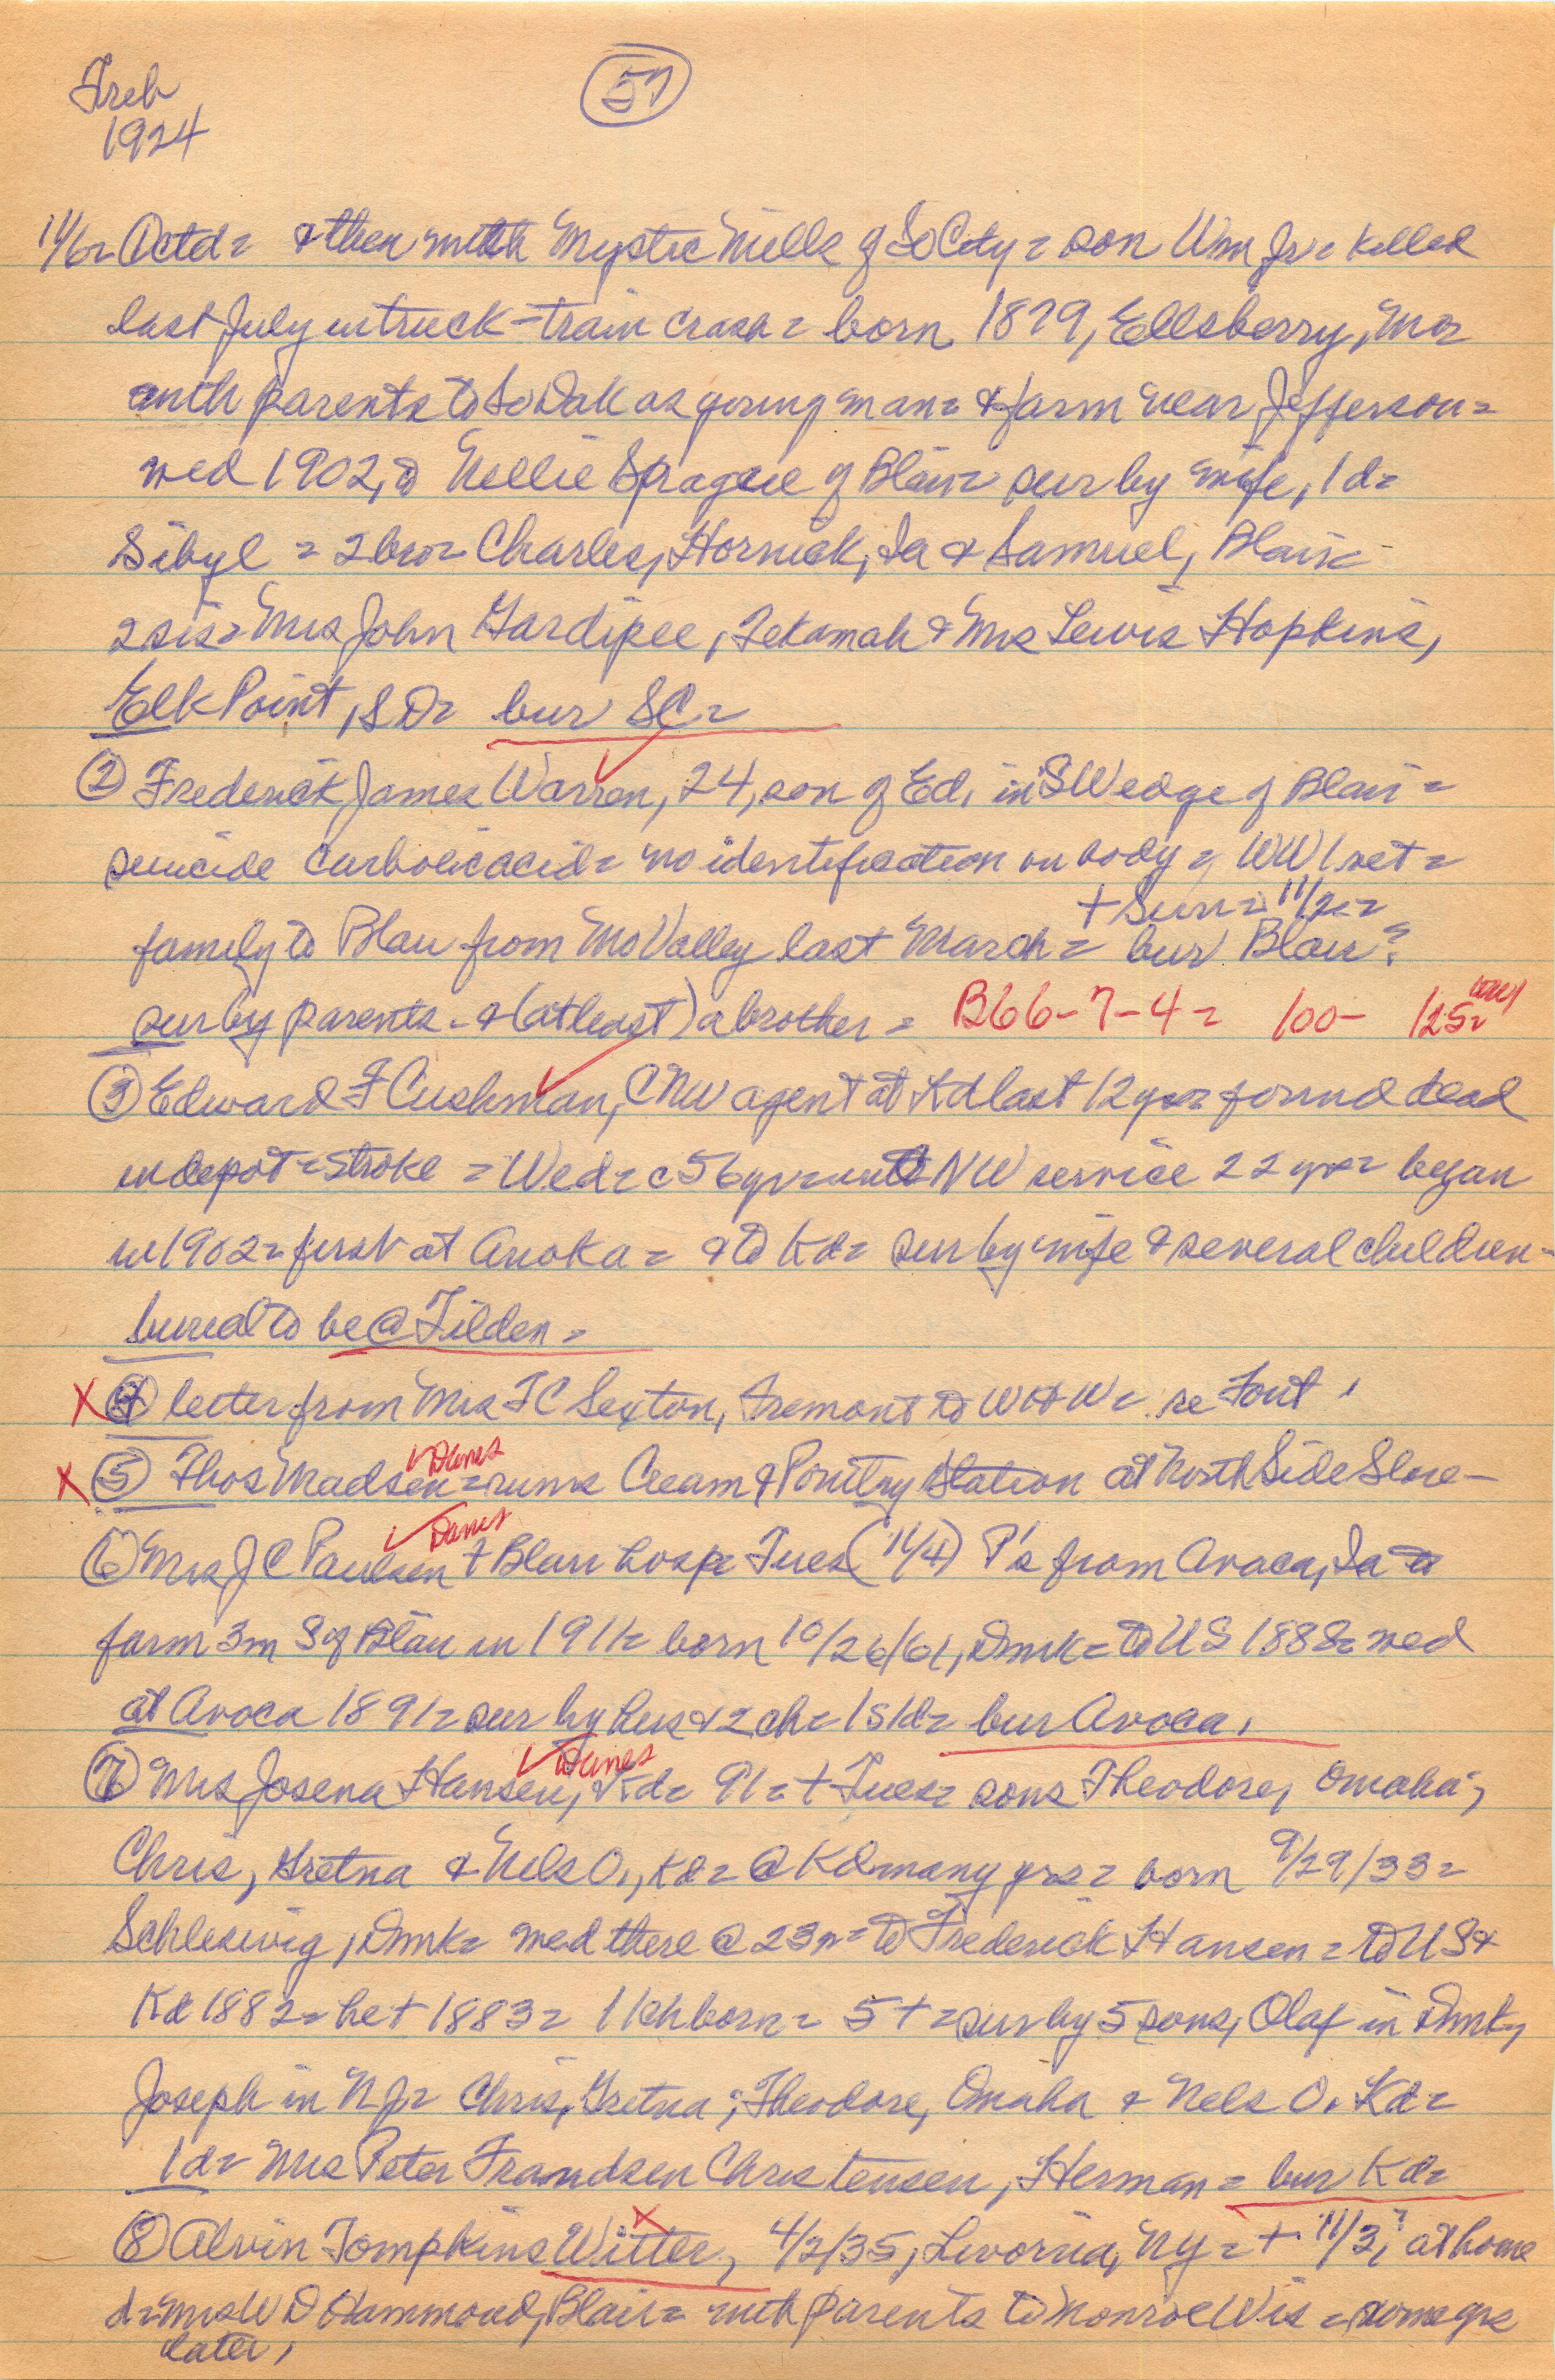 Trib
57
1924
11/6= Contd= & then with Mystic Mills of So City= son Wm Jr= killed
last July in truck-train crash= born 1879, Ellsberry, Mo=
with parents to So Dak as young man= & farm near Jefferson=
wed 1902, to Nellie Sprague of Blair= sur by wife, 1d=
Sibyl = 2bro= Charles, Hornick, Ia & Samuel, Blair=
2sis= Mrs John Gardipee, Tekamah & Mrs Lewis Hopkins,
Elk Point, SD= bur SC=
② Frederick James Warren, 24, son of Ed, in SW edge of Blair=
suicide carbolic acid= no identification on body= WW1 vet=
+ Sun= 11/2=
family to Blair from Mo Valley last March= bur Blair?
sur by parents - & (at least) a brother= B66-7-4= 100- 125=
③ Edward F Cushman, CNW agent at Kd last 12 yrs= found dead
in depot= stroke = Wed= c56yr= into NW service 22 yrs= began
in 1902= first at Anoka= & to Kd= sur by wife & several children-
burial to be @ Tilden=
X ④ letter from Mrs TC Sexton, Fremont to WHW= re Font
✓ Danes
X ⑤ Thos Madsen= runs Cream & Poultry Station at North Side Store-
✓ Danes
⑥ Mrs J C Paulsen + Blair hosp= Tues (11/4) P's from Avoca, Ia to
farm 3m S of Blair in 1911= born 10/26/61, Dmk= to US 1888= wed
at Avoca 1891= sur by hus & 2 ch= 1s1d= bur Avoca,
✓ Danes
⑦ Mrs Josena Hansen, Kd= 91= + Tues= sons Theodore, Omaha;
Chris, Gretna & Nels O., Kd= @ Kd many yrs= born 9/29/33=
Schleswig, Dmk= wed there @ 23= to Frederick Hansen= to US &
Kd 1882= he + 1883= 11ch born= 5+= sur by 5 sons, Olaf in Dmk,
Joseph in NJ= Chris, Gretna; Theodore, Omaha & Nels O. Kd=
1d= Mrs Peter Frandsen Christensen, Herman= bur Kd=
X
⑧ Alvin Tompkins Witter, 4/2/35, Livonia, NY= + 11/3? at home
d= Mrs W D Hammond, Blair= with parents to Monroe Wis= some yrs
later,